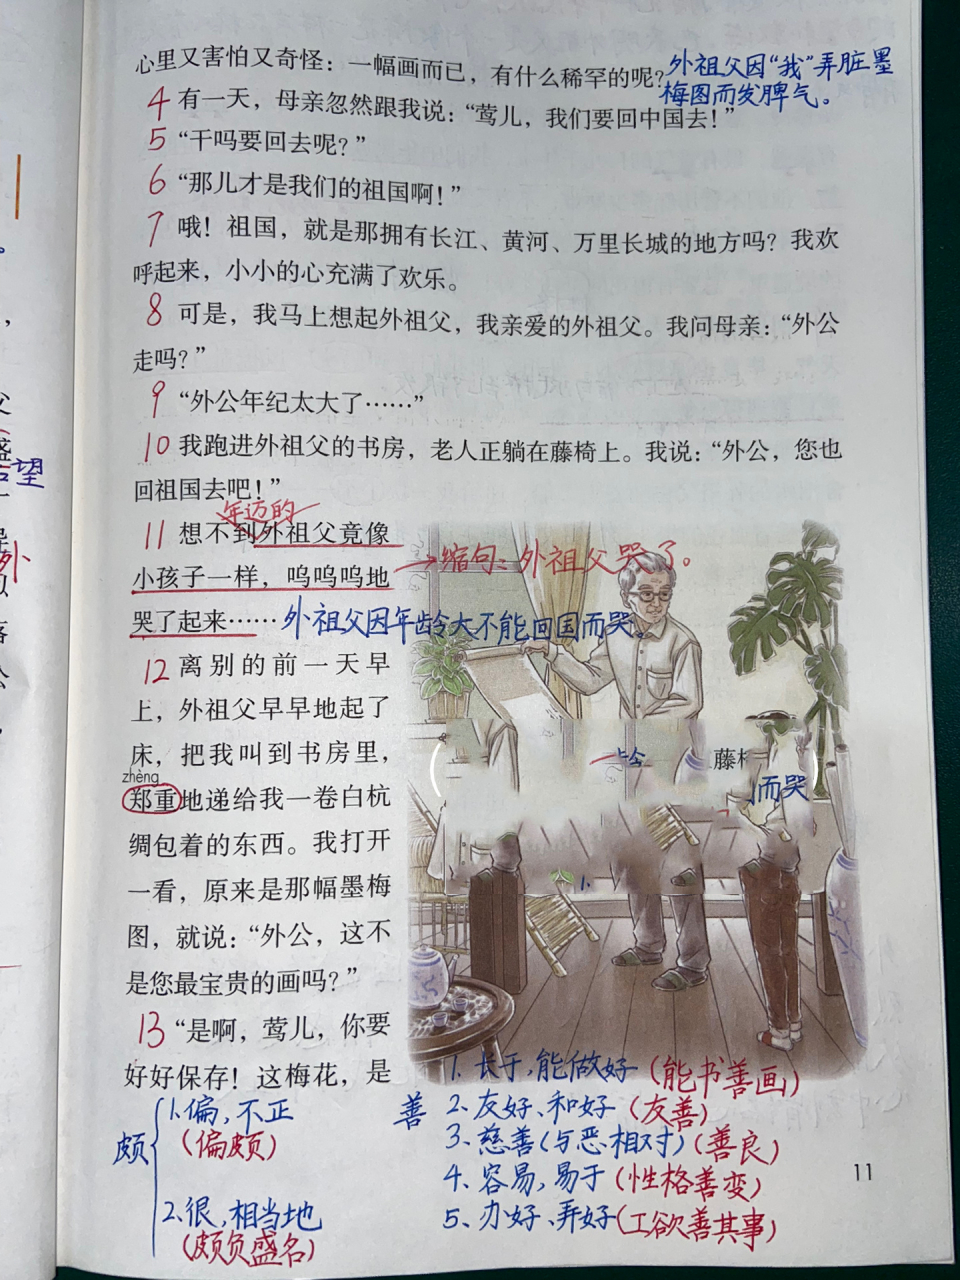 心里又害怕又奇怪：一幅画而已，有什么稀罕的呢？
外祖父因“我”弄脏墨
梅图而发脾气。
4 有一天，母亲忽然跟我说：“莺儿，我们要回中国去！”
5 “干吗要回去呢？”
6 “那儿才是我们的祖国啊！”
7 哦！祖国，就是那拥有长江、黄河、万里长城的地方吗？我欢
呼起来，小小的心充满了欢乐。
8 可是，我马上想起外祖父，我亲爱的外祖父。我问母亲：“外公
走吗？”
9 “外公年纪太大了……”
10 我跑进外祖父的书房，老人正躺在藤椅上。我说：“外公，您也
回祖国去吧！”
年迈的
11 想不到外祖父竟像
小孩子一样，呜呜呜地
哭了起来……
→缩句：外祖父哭了。
外祖父因年龄大不能回国而哭。
12 离别的前一天早
上，外祖父早早地起了
床，把我叫到书房里，
zhèng
郑重地递给我一卷白杭
绸包着的东西。我打开
一看，原来是那幅墨梅
图，就说：“外公，这不
是您最宝贵的画吗？”
藤
而哭
13 “是啊，莺儿，你要
好好保存！这梅花，是
颇
1.偏，不正
（偏颇）
2.很，相当地
（颇负盛名）
善
1.长于，能做好（能书善画）
2.友好、和好（友善）
3.慈善（与恶相对）（善良）
4.容易，易于（性格善变）
5.办好、弄好（工欲善其事）
11
望
外